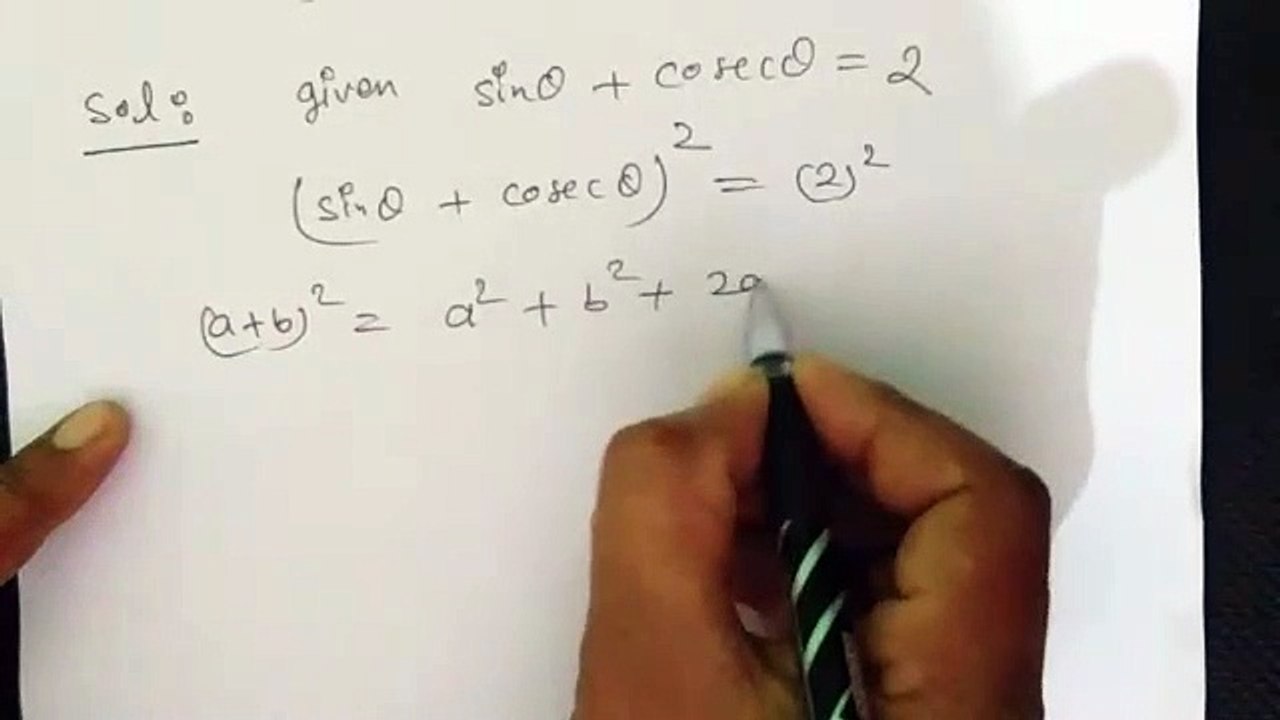 Sol: given sinθ + cosecθ = 2
(sinθ + cosecθ)² = (2)²
(a+b)² = a² + b² + 2a